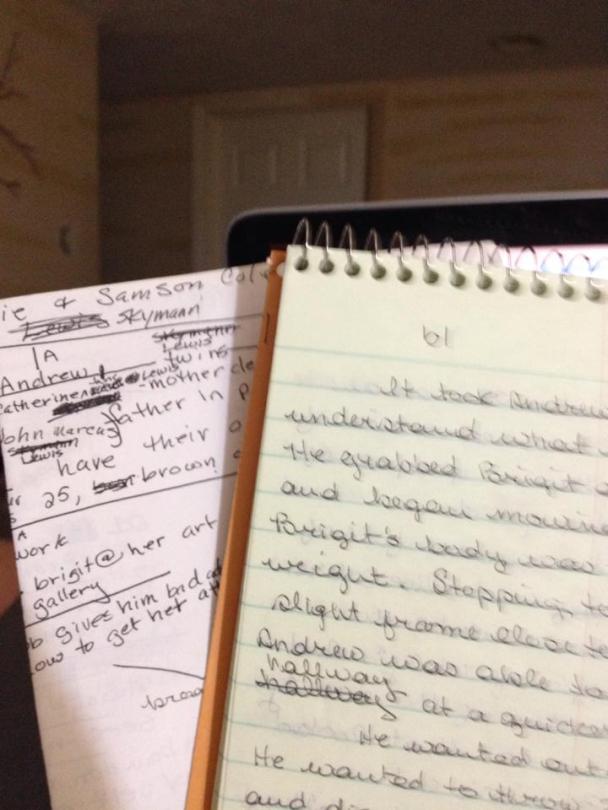 ie & Samson
Lewis Skymann
1A
Skymann
Lewis
Andrew
twins
Catherine
Lewis
-mother de
John Marcus
father in p
Skymann
Lewis
have their o
25, brown
work
brigit@ her art
gallery
gives him bad
ow to get her at
brow
61
It took Andrew
understand what
He grabbed Brigit
and began moving
Brigit's body was
weight. Stopping to
slight frame close to
Andrew was able to
hallway
hallway at a quicker
He wanted out
He wanted to throw
and di